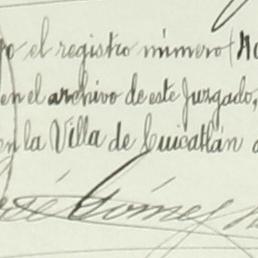 el registro número
en el archivo de este Juzgado,
en la Villa de Cuicatlán
José Gómez